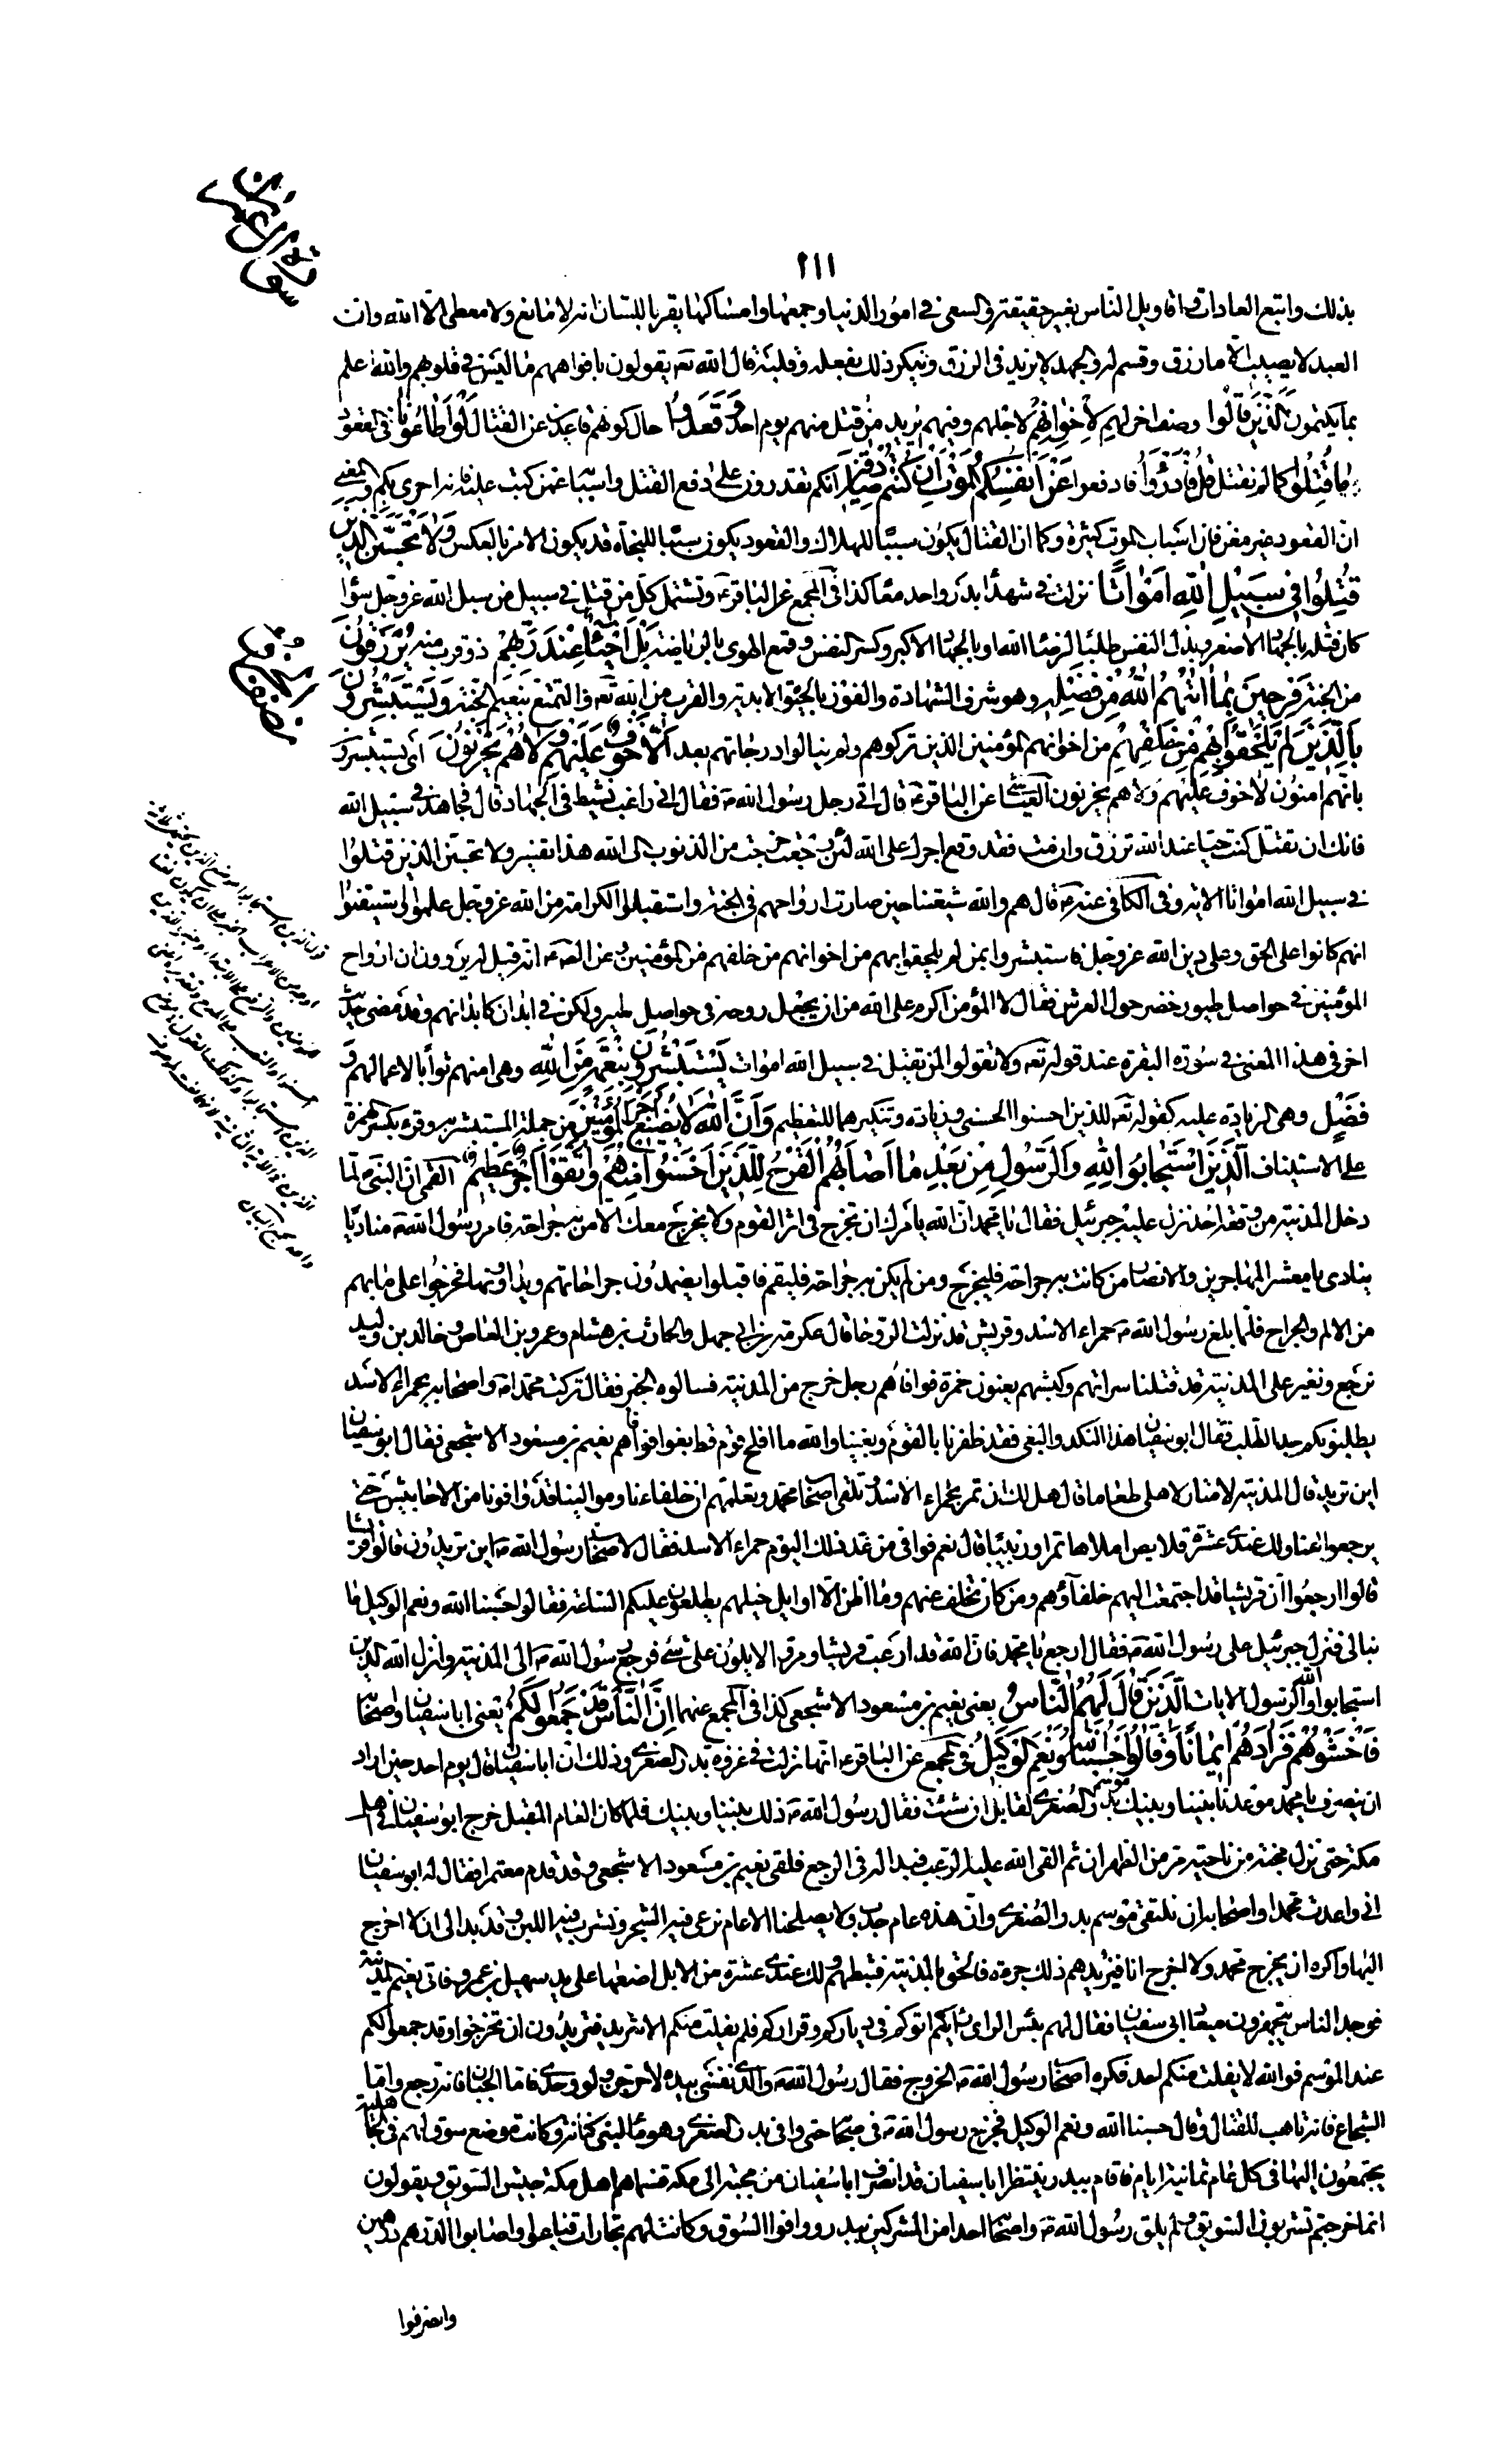 سورة آل عمران
٢١١
بذلك واتبع العادات واقاويل الناس بغير حقيقة والسعى فى امور الدنيا وجمعها وامساكها يقر باللسان انه لا مانع ولا معطى الا الله وان
العبد لا يصيب الا ما رزق وقسم له والجهد لا يزيد فى الرزق وينكر ذلك بفعله وقلبه قال الله تعه يقولون بافواههم ما ليس فى قلوبهم والله اعلم
بما يكتمون الَّذِينَ قَالُوا وصف اخر لهم لِاِخْوَانِهِمْ لاجلهم وفيهم يريد من قتل منهم يوم احد وَقَعَدُوا حال كونهم قاعدين عن القتال لَوْ أَطَاعُونَا فى القعود
مَا قُتِلُوا كما لم نقتل قُلْ فَادْرَؤُا فادفعوا عَنْ أَنْفُسِكُمُ الْمَوْتَ إِنْ كُنْتُمْ صَادِقِينَ انكم تقدرون على دفع القتل واسبابه عمن كتب عليه فانه احرى بكم والمعنى
ان القعود غير مغن فان اسباب الموت كثيرة وكما ان القتال يكون سببا للهلاك والقعود يكون سببا للنجاة قد يكون الامر بالعكس وَلَا تَحْسَبَنَّ الَّذِينَ
قُتِلُوا فِى سَبِيلِ اللهِ أَمْوَاتًا نزلت فى شهداء بدر واحد معا كذا فى المجمع عن الباقر ع وتشتمل كل من قتل فى سبيل من سبل الله عز وجل سواء
كان قتله بالجهاد الاصغر وبذل النفس طلبا لرضا الله او بالجهاد الاكبر وكسر النفس وقمع الهوى بالرياضة بَلْ أَحْيَاءٌ عِنْدَ رَبِّهِمْ ذو قرب منه يُرْزَقُونَ
من الجنة فَرِحِينَ بِمَا آتَاهُمُ اللهُ مِنْ فَضْلِهِ وهو شرف الشهادة والفوز بالحيوة الابدية والقرب من الله تعه والتمتع بنعيم الجنة وَيَسْتَبْشِرُونَ
بِالَّذِينَ لَمْ يَلْحَقُوا بِهِمْ مِنْ خَلْفِهِمْ من اخوانهم المؤمنين الذين تركوهم ولم ينالوا درجاتهم بعد أَلَّا خَوْفٌ عَلَيْهِمْ وَلَا هُمْ يَحْزَنُونَ اى يستبشرون
بانهم امنون لا خوف عليهم ولا هم يحزنون العياشى عن الباقر ع قال اتى رجل رسول الله ص فقال انى راغب نشيط فى الجهاد قال فجاهد فى سبيل الله
فانك ان تقتل كنت حيا عند الله ترزق وان مت فقد وقع اجرك على الله وان رجعت خرجت من الذنوب الى الله هذا تفسير ولا تحسبن الذين قتلوا
فى سبيل الله امواتا الاية وفى الكافى عنه ع قال هم والله شيعتنا حين صارت ارواحهم فى الجنة واستقبلوا الكرامة من الله عز وجل علموا واستيقنوا
انهم كانوا على الحق وعلى دين الله عز وجل فاستبشروا بمن لم يلحقوا بهم من اخوانهم من خلفهم من المؤمنين وعن الصه ع انه قيل له يروون ان ارواح
المؤمنين فى حواصل طيور خضر حول العرش فقال لا المؤمن اكرم على الله من ان يجعل روحه فى حواصل طير ولكن فى ابدان كابدانهم وقد مضى حديث
اخر فى هذا المعنى فى سورة البقرة عند قوله تعه ولا تقولوا لمن يقتل فى سبيل الله اموات يَسْتَبْشِرُونَ بِنِعْمَةٍ مِنَ اللهِ وهى امنهم ثوابا لاعمالهم وَ
فَضْلٍ وهى الزيادة عليه كقوله تعه للذين احسنوا الحسنى وزيادة وتنكيرهما للتعظيم وَأَنَّ اللهَ لَا يُضِيعُ أَجْرَ الْمُؤْمِنِينَ من جملة المستبشر به وقرء بكسر الهمزة
على الاستيناف الَّذِينَ اسْتَجَابُوا لِلهِ وَالرَّسُولِ مِنْ بَعْدِ مَا أَصَابَهُمُ الْقَرْحُ لِلَّذِينَ أَحْسَنُوا مِنْهُمْ وَاتَّقَوْا أَجْرٌ عَظِيمٌ القمى ان النبى ص لما
دخل المدينة من وقعة احد نزل عليه جبرئيل فقال يا محمد ان الله يأمرك ان تخرج فى اثر القوم ولا يخرج معك الا من به جراحة فامر رسول الله ص مناديا
ينادى يا معشر المهاجرين والانصار من كانت به جراحة فليخرج ومن لم يكن به جراحة فليقم فاقبلوا يضمدون جراحاتهم ويداوونها فخرجوا على ما بهم
من الالم والجراح فلما بلغ رسول الله ص حمراء الاسد وقريش قد نزلت الروحا قال عكرمة بن ابى جهل والحارث بن هشام وعمرو بن العاص وخالد بن وليد
نرجع ونغير على المدينة قد قتلنا سراتهم وكبشهم يعنون حمزة فوافاهم رجل خرج من المدينة فسألوه الخبر فقال تركت محمدا ص واصحابه بحمراء الاسد
يطلبونكم جد الطلب فقال ابو سفيان هذا النكد والبغى فقد ظفرنا بالقوم وبغينا والله ما افلح قوم قط بغوا فوافاهم نعيم بن مسعود الاشجعى فقال ابو سفيان
اين تريد قال المدينة لامتار لاهلى طعاما قال هل لك ان تمر بحمراء الاسد وتلقى اصحاب محمد وتعلمهم ان خلفاءنا وموالينا قد وافونا من الاحابيش حتى
يرجعوا عنا ولك عندى عشرة قلايص املاها تمرا وزبيبا قال نعم فوافى من غد ذلك اليوم حمراء الاسد فقال لاصحاب رسول الله ص اين تريدون قالوا قريشا
قالوا ارجعوا ان قريشا قد اجتمعت اليهم خلفاؤهم ومن كان تخلف عنهم وما اظن الا اوايل خيلهم يطلعون عليكم الساعة فقالوا حسبنا الله ونعم الوكيل ما
نبالى فنزل جبرئيل على رسول الله ص فقال ارجع يا محمد فان الله قد ارعب قريشا ومروا لا يلوون على شئ فرجع رسول الله ص الى المدينة وانزل الله الذين
استجابوا لله والرسول الايات الَّذِينَ قَالَ لَهُمُ النَّاسُ يعنى نعيم بن مسعود الاشجعى كذا فى المجمع عنهما إِنَّ النَّاسَ قَدْ جَمَعُوا لَكُمْ يعنى ابا سفيان واصحابه
فَاخْشَوْهُمْ فَزَادَهُمْ إِيمَانًا وَقَالُوا حَسْبُنَا اللهُ وَنِعْمَ الْوَكِيلُ فى المجمع عن الباقر ع انها نزلت فى غزوة بدر الصغرى وذلك ان ابا سفيان قال يوم احد حين اراد
ان ينصرف يا محمد موعدنا بيننا وبينك موسم بدر الصغرى لقابل ان شئت فقال رسول الله ص ذلك بيننا وبينك فلما كان العام المقبل خرج ابو سفيان فى اهل
مكة حتى نزل مجنة من ناحية مر من الظهران ثم القى الله عليه الرعب فبدا له فى الرجع فلقى نعيم بن مسعود الاشجعى وقد قدم معتمرا فقال له ابو سفيان
انى واعدت محمدا واصحابه ان نلتقى موسم بدر الصغرى وان هذه عام جدب ولا يصلحنا الا عام نرعى فيه الشجر ونشرب فيه اللبن وقد بدا لى ان لا اخرج
اليها واكره ان يخرج محمد ولا اخرج انا فيزيدهم ذلك جرءة فالحق بالمدينة فثبطهم ولك عندى عشرة من الابل اضعها على يد سهيل بن عمرو فاتى نعيم المدينة
فوجد الناس يتجهزون ميعاد ابى سفيان فقال لهم بئس الراى رايكم اتوكم فى دياركم وقراركم فلم يفلت منكم الا شريد فتريدون ان تخرجوا وقد جمعوا لكم
عند الموسم فوالله لا يفلت منكم احد فكره اصحاب رسول الله ص الخروج فقال رسول الله ص والذى نفسى بيده لاخرجن ولو وحدى فاما الجبان فانه رجع واما
الشجاع فانه تاهب للقتال وقال حسبنا الله ونعم الوكيل فخرج رسول الله ص فى اصحابه حتى وافى بدر الصغرى وهو ماء لبنى كنانة وكانت موضع سوق لهم فى الجاهلية
يجتمعون اليها فى كل عام ثمانية ايام فاقام ببدر ينتظر ابا سفيان وقد انصرف ابا سفيان من مجنة الى مكة فسماهم اهل مكة جيش السويق ويقولون
انما خرجتم تشربون السويق ولم يلق رسول الله ص واصحابه احدا من المشركين ببدر ووافوا السوق وكانت لهم تجارات فباعوا واصابوا الدرهم درهمين
وانصرفوا